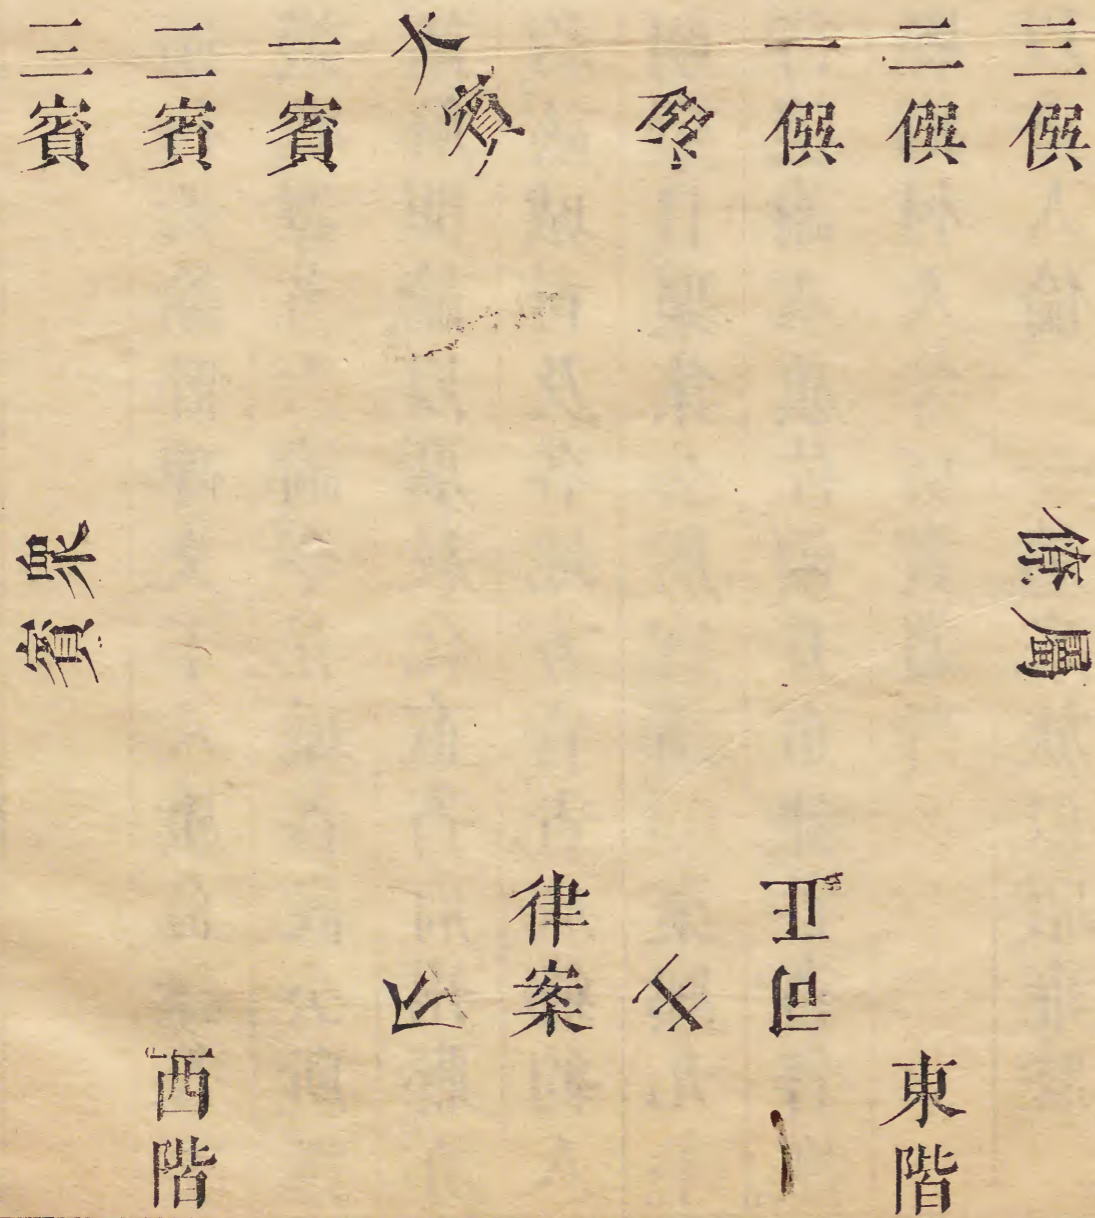 三僎
二僎
一僎
僎
大賓
一賓
二賓
三賓
僚屬
衆賓
司正
主
律案
介
東階
西階